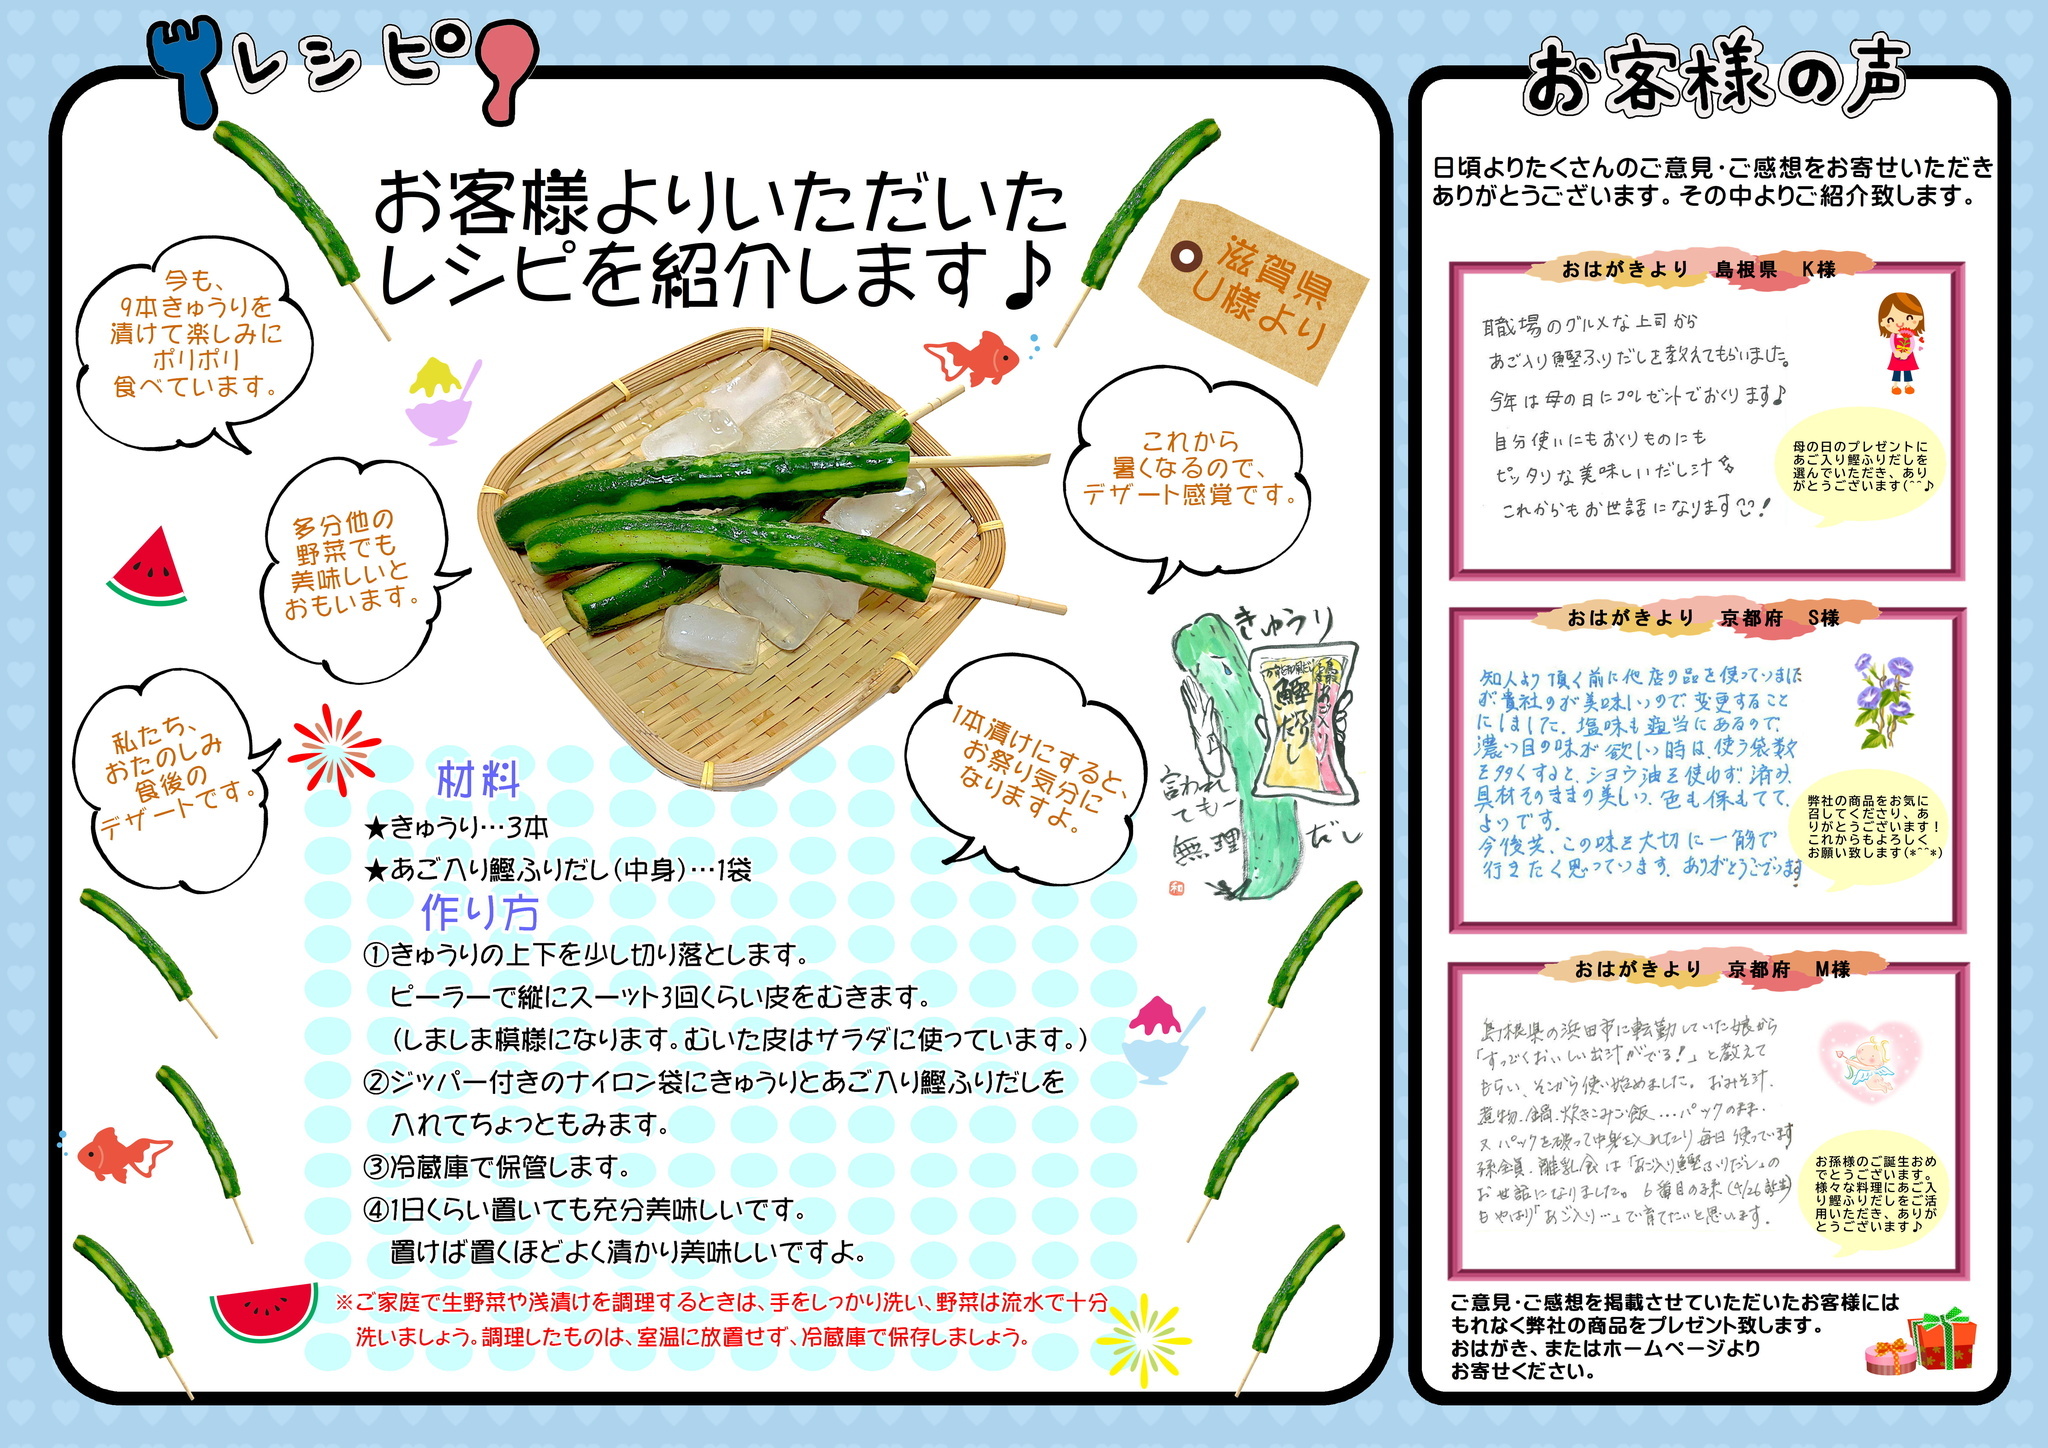 レシピ
お客様よりいただいた
レシピを紹介します♪
滋賀県
U様より
今も、
9本きゅうりを
漬けて楽しみに
ポリポリ
食べています。
多分他の
野菜でも
美味しいと
おもいます。
私たち、
おたのしみ
食後の
デザートです。
これから
暑くなるので、
デザート感覚です。
1本漬けにすると、
お祭り気分に
なりますよ。
きゅうり
あご入り
鰹ふりだし
言われ
ても〜
無理
だし
材料
★きゅうり…3本
★あご入り鰹ふりだし(中身)…1袋
作り方
①きゅうりの上下を少し切り落とします。
ピーラーで縦にスーット3回くらい皮をむきます。
(しましま模様になります。むいた皮はサラダに使っています。)
②ジッパー付きのナイロン袋にきゅうりとあご入り鰹ふりだしを
入れてちょっともみます。
③冷蔵庫で保管します。
④1日くらい置いても充分美味しいです。
置けば置くほどよく漬かり美味しいですよ。
※ご家庭で生野菜や浅漬けを調理するときは、手をしっかり洗い、野菜は流水で十分
洗いましょう。調理したものは、室温に放置せず、冷蔵庫で保存しましょう。
お客様の声
日頃よりたくさんのご意見・ご感想をお寄せいただき
ありがとうございます。その中よりご紹介致します。
おはがきより 島根県 K様
職場のグルメな上司から
あご入り鰹ふりだしを教えてもらいました。
今年は母の日にプレゼントでおくります♪
自分使いにもおくりものにも
ピッタリな美味しいだし汁
これからもお世話になります!
母の日のプレゼントに
あご入り鰹ふりだしを
選んでいただき、あり
がとうございます(^^♪
おはがきより 京都府 S様
知人より頂く前に他店の品を使っていました
が、貴社のが美味しいので、変更すること
にしました。塩味も適当にあるので、
濃い目の味が欲しい時は、使う袋数
を多くすると、ショウ油を使わず済み、
具材そのままの美しい、色も保もてて、
よいです。
今後共、この味を大切に一筋で
行きたく思っています。ありがとうございます。
弊社の商品をお気に
召してくださり、あ
りがとうございます!
これからもよろしく
お願い致します(*^^*)
おはがきより 京都府 M様
島根県の浜田市に転勤していた娘から
「すっごくおいしい出汁がでる!」と教えて
もらい、そこから使い始めました。おみそ汁、
煮物、鍋、炊きこみご飯…パックのまま・
又パックを破って中身を入れたり毎日使っています
孫全員、離乳食は「あご入り鰹ふりだし」の
お世話になりました。6番目の孫(4/26誕生)
もやはり「あご入り…」で育てたいと思います。
お孫様のご誕生おめ
でとうございます。
様々な料理にあご入
り鰹ふりだしをご活
用いただき、ありが
とうございます♪
ご意見・ご感想を掲載させていただいたお客様には
もれなく弊社の商品をプレゼント致します。
おはがき、またはホームページより
お寄せください。